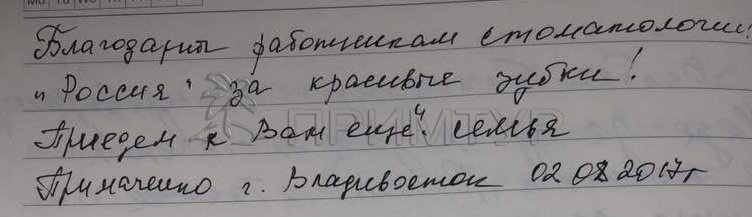 Благодарим работникам стоматологии!
"Россия" за красивые зубки!
Приедем к Вам ещё". семья
Примаченко г. Владивосток 02 08 2017г
ПРИМТУР